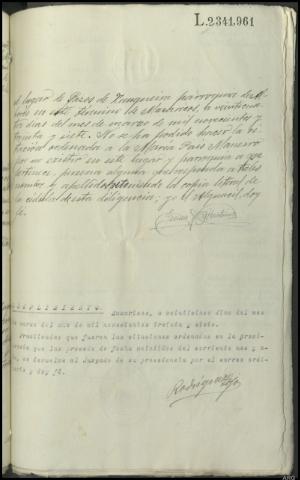 L.2341.961
el lugar de Pazos de Tranqueira parroquia de
en este término de Mashires, a veinticua
tro dias del mes de marzo de mil novecientos y
treinta y siete. No se ha podido hacer la ci
tación ordenada a la María Pais Maneiro
por no existir en este lugar y parroquia a que
pertenece, persona alguna que responda a tales
nombre y apellidos, extendida copia literal de
la cédula de esta diligencia; yo el Alguacil, doy
fé.
CUMPLIMIENTO. a veintiseis dias del mes
de marzo del año de mil novecientos treinta y siete.
Practicadas que fueron las citaciones ordenadas en la provi
dencia que las precede de fecha veintidos del corriente mes y a
ño, se devuelve al Juzgado de su procedencia por el correo ordi
nario y doy fé.
Rodríguez